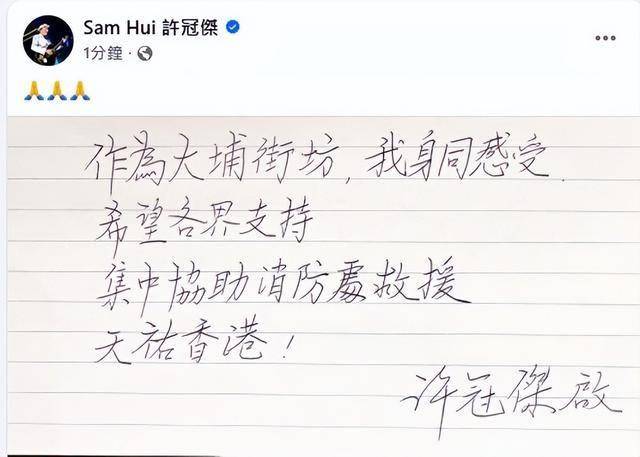 Sam Hui 許冠傑
1分鐘 ·
🙏🙏🙏
作為大埔街坊,我身同感受.
希望各界支持
集中協助消防處救援
天祐香港!
許冠傑 啟